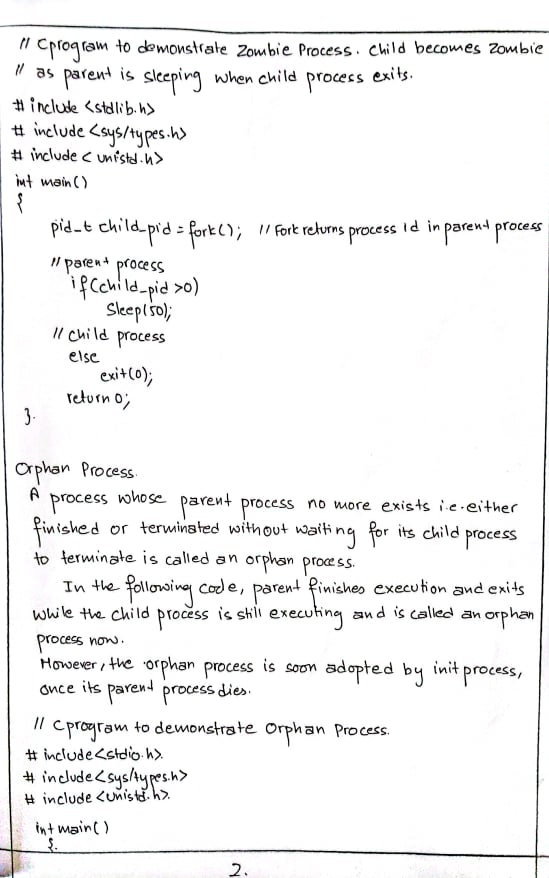 // Cprogram to demonstrate Zombie Process. Child becomes Zombie
// as parent is sleeping when child process exits.
# include <stdlib.h>
# include <sys/types.h>
# include < unistd.h>
int main()
{
pid_t child_pid = fork(); // Fork returns process id in parent process
// parent process
if(child_pid >0)
Sleep(50);
// child process
else
exit(0);
return 0;
}.
Orphan Process.
A process whose parent process no more exists i.e. either
finished or terminated without waiting for its child process
to terminate is called an orphan process.
In the following code, parent finishes execution and exits
while the child process is still executing and is called an orphan
process now.
However, the orphan process is soon adopted by init process,
once its parent process dies.
// C program to demonstrate Orphan Process.
# include<stdio.h>.
# include<sys/types.h>
# include <unistd.h>.
int main()
{.
2.